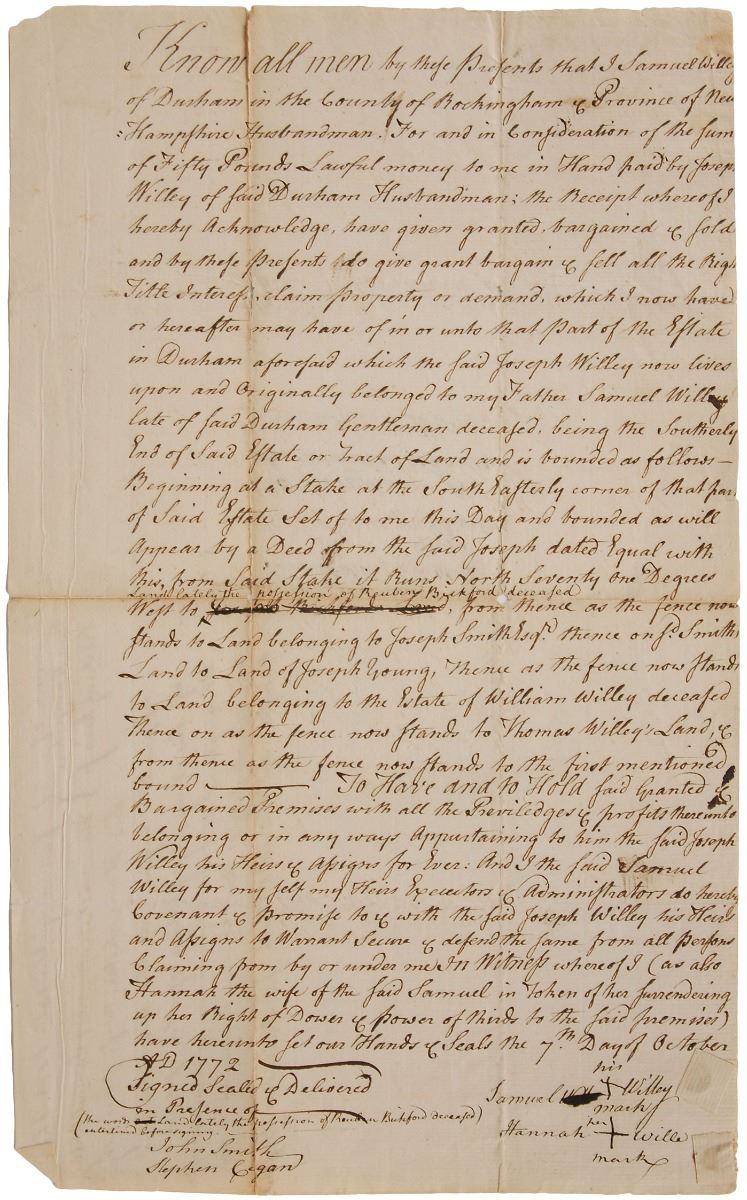 Know all men by these Presents that I Samuel Willey
of Durham in the County of Rockingham & Province of New
=Hampshire Husbandman. For and in Consideration of the sum
of Fifty Pounds Lawful money to me in Hand paid by Joseph
Willey of said Durham Husbandman; the Receipt whereof I
hereby Acknowledge, have given granted, bargained & sold
and by these Presents do give grant bargain & sell all the Righ
Title Interest, claim property or demand, which I now have
or hereafter may have of in or unto that part of the Estate
in Durham aforesaid which the said Joseph Willey now lives
upon and Originally belonged to my Father Samuel Willey
late of said Durham Gentleman deceased, being the Southerly
End of Said Estate or Tract of Land and is bounded as follows—
Beginning at a Stake at the South Easterly corner of that par
of Said Estate Set of to me this Day and bounded as will
Appear by a Deed from the said Joseph dated Equal with
this, from Said Stake it Runs North Seventy one Degrees
Land lately the possession of Reuben Bickford deceased
West to , from thence as the fence now
stands to Land belonging to Joseph Smith Esqr. thence on sd. Smith
Land to Land of Joseph Young, Thence as the fence now Stands
to Land belonging to the Estate of William Willey deceased
Thence on as the fence now Stands to Thomas Willey's Land, &
from thence as the fence now stands to the first mentioned
bound — To Have and to Hold said Granted &
Bargained Premises with all the Priviledges & profits thereunto
belonging or in any ways Appurtaining to him the said Joseph
Willey his Heirs & Assigns for Ever: And I the said Samuel
Willey for my self my Heirs Executors & Administrators do hereby
Covenant & promise to & with the said Joseph Willey his Heirs
and Assigns to Warrant Secure & defend the same from all persons
Claiming from by or under me In Witness whereof I (as also
Hannah the wife of the said Samuel in Token of her surrendering
up her Right of Dower & power of thirds to the said premises)
have hereunto set our Hands & Seals the 7th Day of October
AD 1772
Signed Sealed & Delivered
in Presence of
(the words Land lately the possession of Reuben Bickford deceased)
enterlined before signing
John Smith
Stephen Cogan
his
Samuel Willey
mark
her
Hannah + Wille
mark